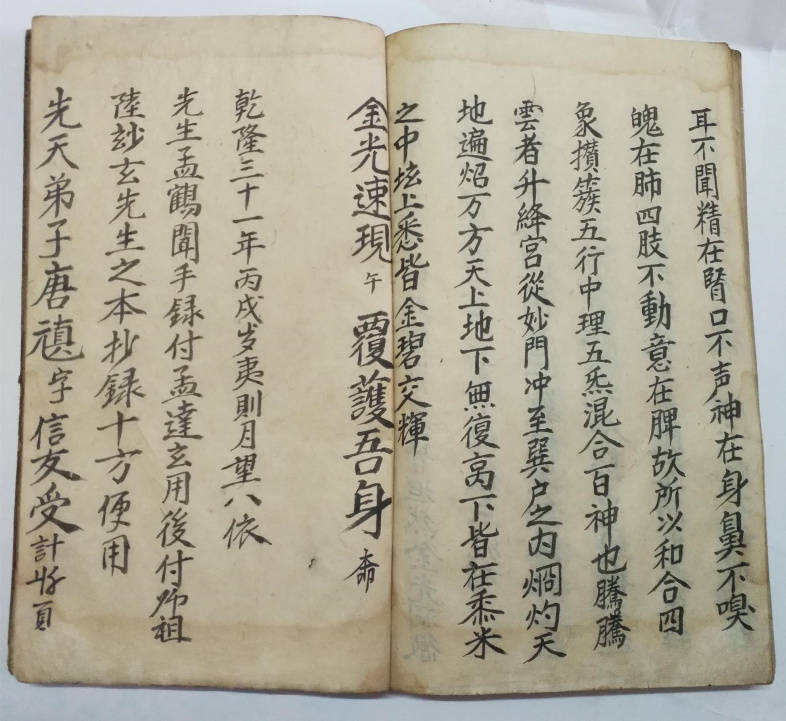 耳不聞精在腎口不声神在身鼻不嗅
魄在肺四肢不動意在脾故所以和合四
象攅簇五行中理五炁混合百神也騰騰
雲者升絳宮從妙門冲至巽户之内烱灼天
地遍炤万方天上地下無復高下皆在黍米
之中坛上悉皆金碧交輝
金光速現 午 覆護吾身
乾隆三十一年丙戌岁夷則月望八依
先生孟鶴聞手録付孟達玄用後付师祖
陸玅玄先生之本抄録十方便用
先天弟子唐禛字信友受計 頁